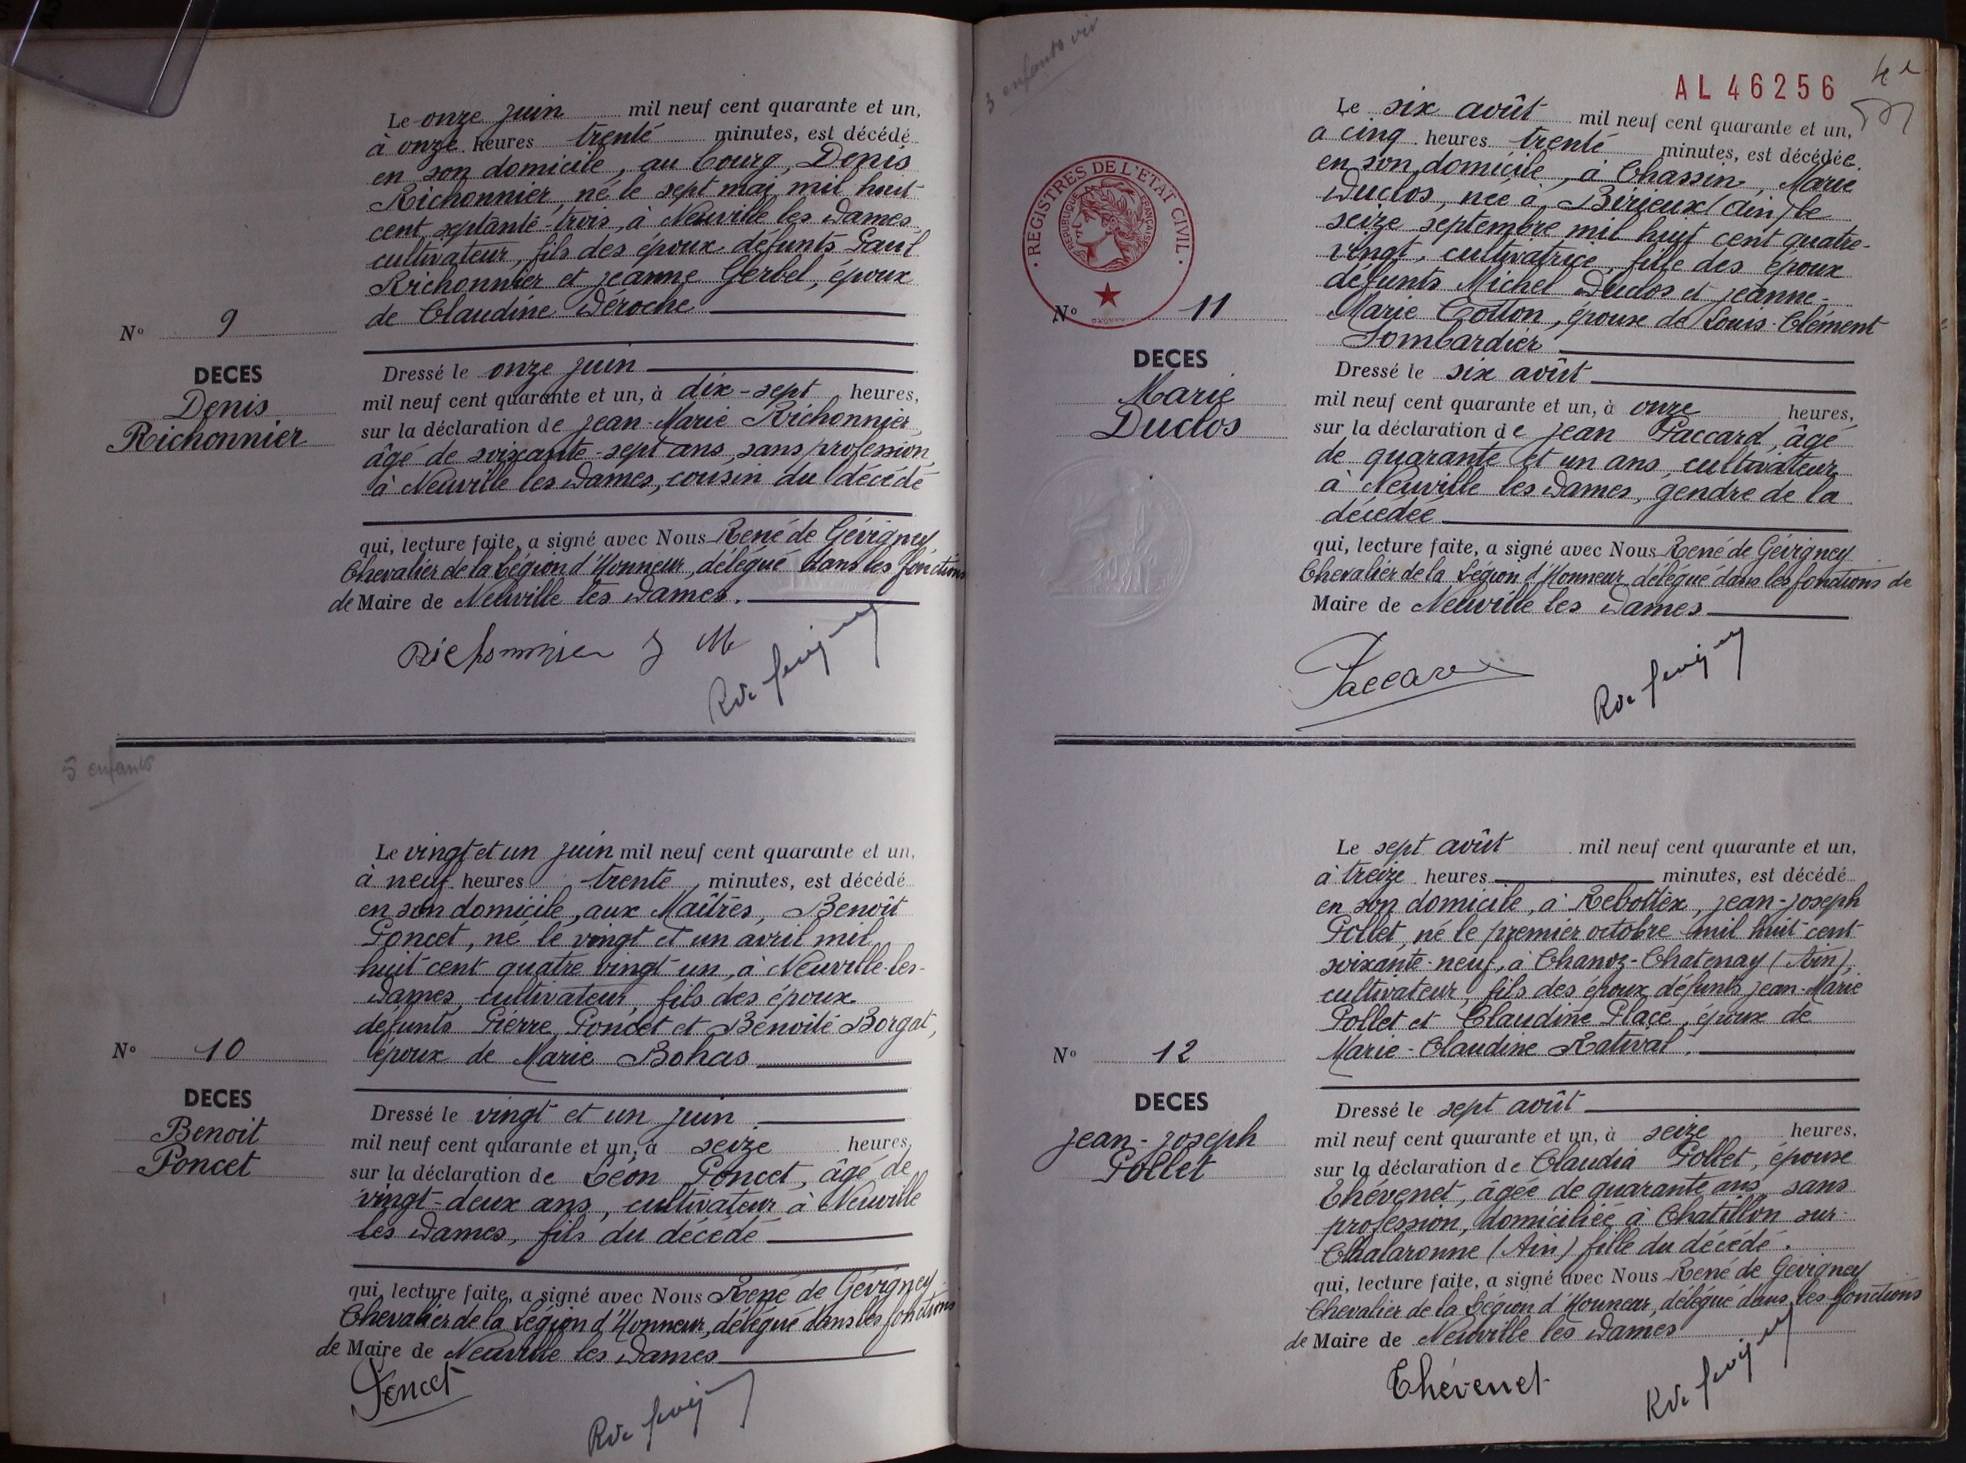 Le onze juin mil neuf cent quarante et un,
à onze heures trente minutes, est décédé
en son domicile, au bourg, Denis
Richonnier, né le sept mai mil huit
cent septante-trois, à Neuville les Dames
cultivateur, fils des époux défunts Paul
Richonnier et Jeanne Gerbel, époux
de Claudine Déroche
N° 9
DECES
Denis
Richonnier
Dressé le onze juin
mil neuf cent quarante et un, à dix-sept heures,
sur la déclaration de Jean-Marie Richonnier,
âgé de soixante-sept ans, sans profession,
à Neuville les Dames, cousin du décédé
qui, lecture faite, a signé avec Nous René de Gévigney
Chevalier de la Légion d'Honneur, délégué dans les fonctions
de Maire de Neuville les Dames.
Richonnier J M
R de Gevigney
5 enfants
Le vingt et un juin mil neuf cent quarante et un,
à neuf heures trente minutes, est décédé
en son domicile, aux Maîtres, Benoît
Poncet, né le vingt et un avril mil
huit cent quatre vingt un, à Neuville-les-
Dames, cultivateur, fils des époux
défunts Pierre Poncet et Benoîte Borgat,
époux de Marie Bohas
N° 10
DECES
Benoit
Poncet
Dressé le vingt et un juin
mil neuf cent quarante et un, à seize heures,
sur la déclaration de Léon Poncet, âgé de
vingt-deux ans, cultivateur à Neuville
les Dames, fils du décédé
qui, lecture faite, a signé avec Nous René de Gévigney
Chevalier de la Légion d'Honneur, délégué dans les fonctions
de Maire de Neuville les Dames
Poncet
R de Gevigney
3 enfants viv
AL 46256
Le six août mil neuf cent quarante et un,
à cinq heures trente minutes, est décédée
en son domicile, à Chassin, Marie
Duclos, née à Birieux (Ain) le
seize septembre mil huit cent quatre-
vingt, cultivatrice, fille des époux
défunts Michel Duclos et Jeanne-
Marie Cotton, épouse de Louis-Clément
Lombardier
REGISTRES DE L'ETAT CIVIL
REPUBLIQUE FRANÇAISE
N° 11
DECES
Marie
Duclos
Dressé le six août
mil neuf cent quarante et un, à onze heures,
sur la déclaration de Jean Paccard, âgé
de quarante et un ans, cultivateur
à Neuville les Dames, gendre de la
décédée
qui, lecture faite, a signé avec Nous René de Gévigney
Chevalier de la Légion d'Honneur, délégué dans les fonctions de
Maire de Neuville les Dames
Paccard
R de Gevigney
Le sept août mil neuf cent quarante et un,
à treize heures minutes, est décédé
en son domicile, à Rebottex, Jean-Joseph
Pollet, né le premier octobre mil huit cent
soixante-neuf, à Chanoz-Chatenay (Ain),
cultivateur, fils des époux défunts Jean-Marie
Pollet et Claudine Place, époux de
Marie-Claudine Rativat.
N° 12
DECES
Jean-Joseph
Pollet
Dressé le sept août
mil neuf cent quarante et un, à seize heures,
sur la déclaration de Claudia Pollet, épouse
Thévenet, âgée de quarante ans, sans
profession, domiciliée à Chatillon sur-
Chalaronne (Ain) fille du décédé.
qui, lecture faite, a signé avec Nous René de Gévigney
Chevalier de la Légion d'Honneur, délégué dans les fonctions
de Maire de Neuville les Dames
Thévenet
R de Gevigney